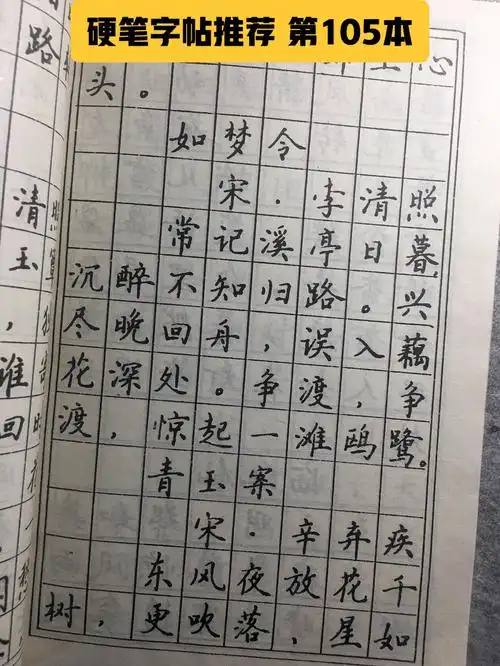 硬笔字帖推荐 第105本
心
头。
如梦令
宋·李清照
常记溪亭日暮，
沉醉不知归路。兴
尽晚回舟，误入藕
花深处。争渡，争
渡，惊起一滩鸥鹭。
青玉案
宋·辛弃疾
东风夜放花千
树，更吹落，星如
路
清
玉
，
谁
回